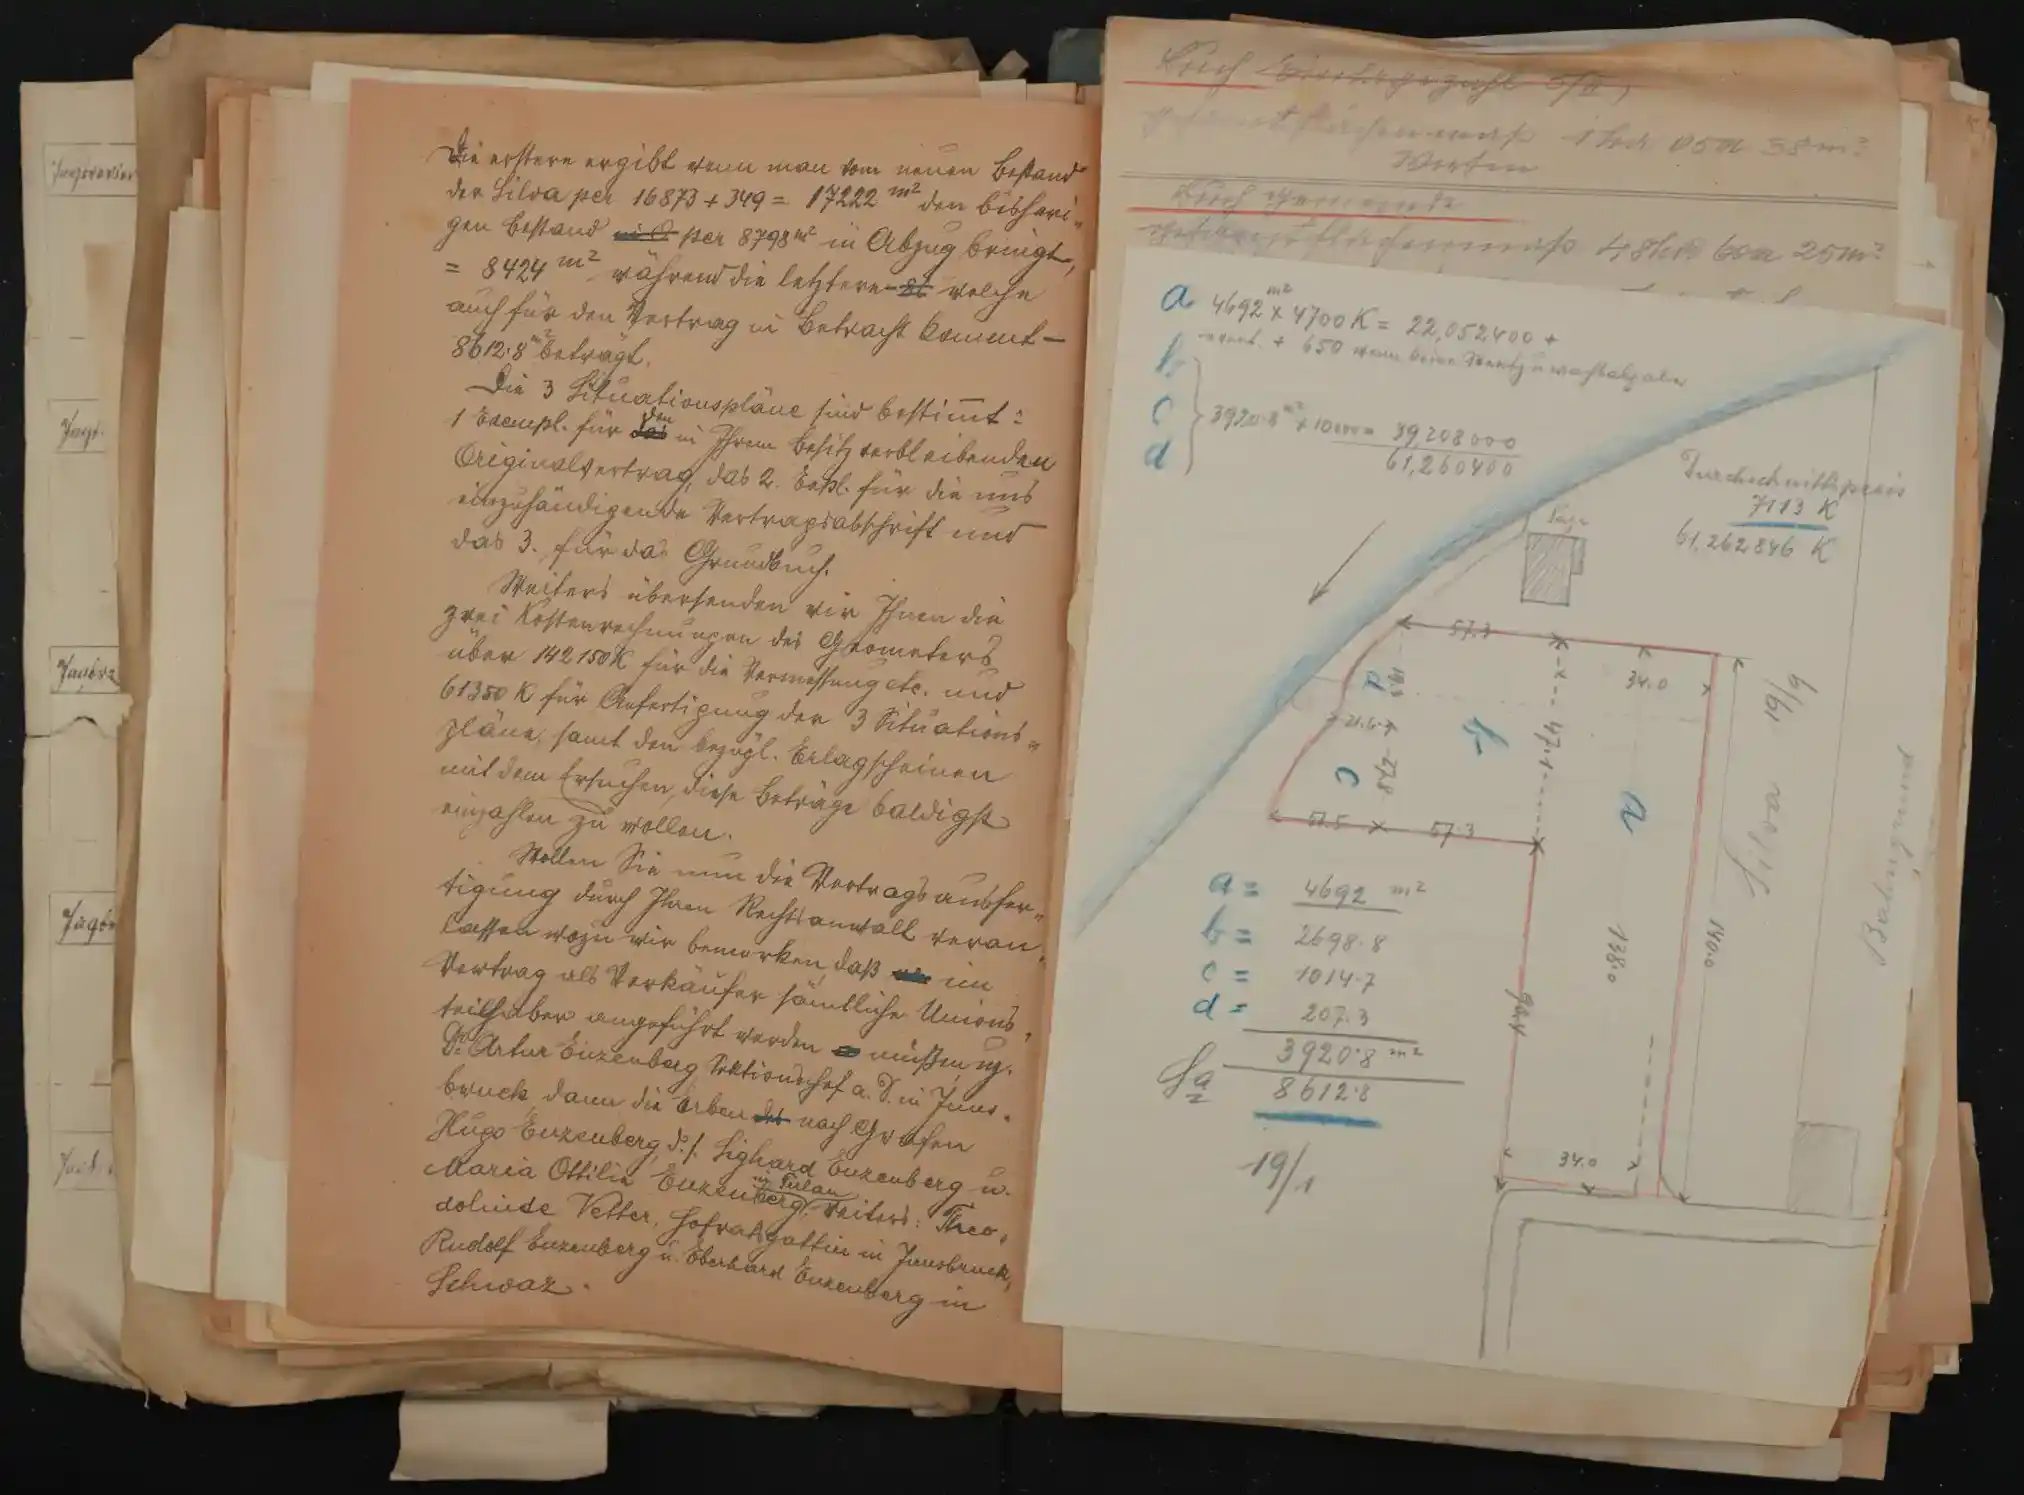 Die erstere ergibt wenn man vom neuen Bestand
der Silva per 16873 + 349 = 17222 m² den bisheri-
gen Bestand per 8798 m² in Abzug bringt,
= 8424 m² während die letztere welche
auch für den Vertrag in Betracht kommt –
8612·8 m² beträgt.
Die 3 Situationspläne sind bestimmt:
1 Exempl. für den in Ihrem Besitz verbleibenden
Originalvertrag, das 2. Expl. für die uns
einzuhändigende Vertragsabschrift und
das 3. für das Grundbuch.
Weiters übersenden wir Ihnen die
zwei Kostenrechnungen des Geometers
über 142150 K für die Vermessung etc. und
61350 K für Anfertigung der 3 Situations-
pläne, samt den bezügl. Erlagscheinen
mit dem Ersuchen, diese Beträge baldigst
einzahlen zu wollen.
Wollen Sie nun die Vertragsausfer-
tigung durch Ihren Rechtsanwalt veran-
lassen wozu wir bemerken, daß im
Vertrag als Verkäufer sämtliche Unions-
teilhaber angeführt werden müßen, u.
Dr Artur Enzenberg Sektionschef a. D. in Inns-
bruck, dann die Erben nach Grafen
Hugo Enzenberg, d. s. Sighard Enzenberg u.
Maria Ottilie Enzenberg, weiters: Theo-
dolinde Vetter, Hofratsgattin in Innsbruck,
Rudolf Enzenberg u. Eberhard Enzenberg in
Schwaz.
1 ha 05 a 38 m²
48 ha 60 a 25 m²
a 4692 m² × 4700 K = 22,052400 +
+ 650 wenn keine
b
c 3920·8 m² × 10000 = 39,208000
d 61,260400
Durchschnittspreis
7113 K
61,262846 K
Säge
57.3
34.0
19/9
d
b
47.1
c
27.8
a
57.3
Silva
Bahngrund
138.0
140.0
34.0
a = 4692 m²
b = 2698.8
c = 1014.7
d = 207.3
3920·8 m²
Sa 8612·8
19/1